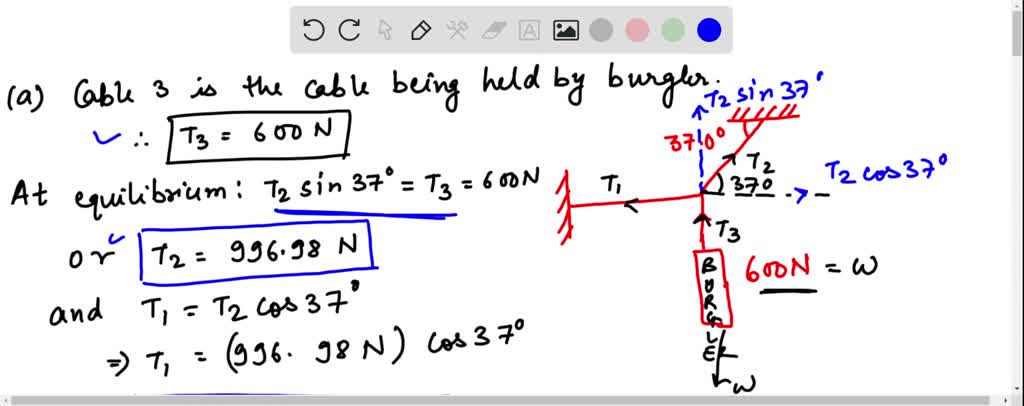 (a) Cable 3 is the cable being held by burgler.
∴ T3 = 600 N
At equilibrium: T2 sin 37° = T3 = 600N
or T2 = 996.98 N
and T1 = T2 cos 37°
⇒ T1 = (996.98 N) cos 37°
A
T2 sin 37°
37.0°
T2
T1
370
T2 cos 37°
T3
BURGLE
600N = W
W